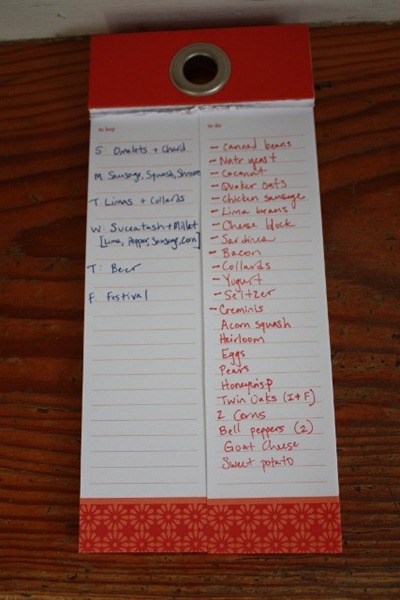 to buy
S Omelets + Chard
M. Sausage, Squash, Shroom
T. Limas + Collards
W: Succatash + Millet
[Lima, Pepper, Sausage, Corn]
T: Beer
F. Festival
to do
- Canned beans
- Nutr yeast
- Coconut
- Quaker oats
- Chicken sausage
- Lima beans
- Cheese block
- Sardines
- Bacon
- Collards
- Yogurt
- Seltzer
- Creminis
Acorn squash
Heirloom
Eggs
Pears
Honeycrisp
Twin Oaks (I + F)
2 Corns
Bell peppers (2)
Goat Cheese
Sweet potato